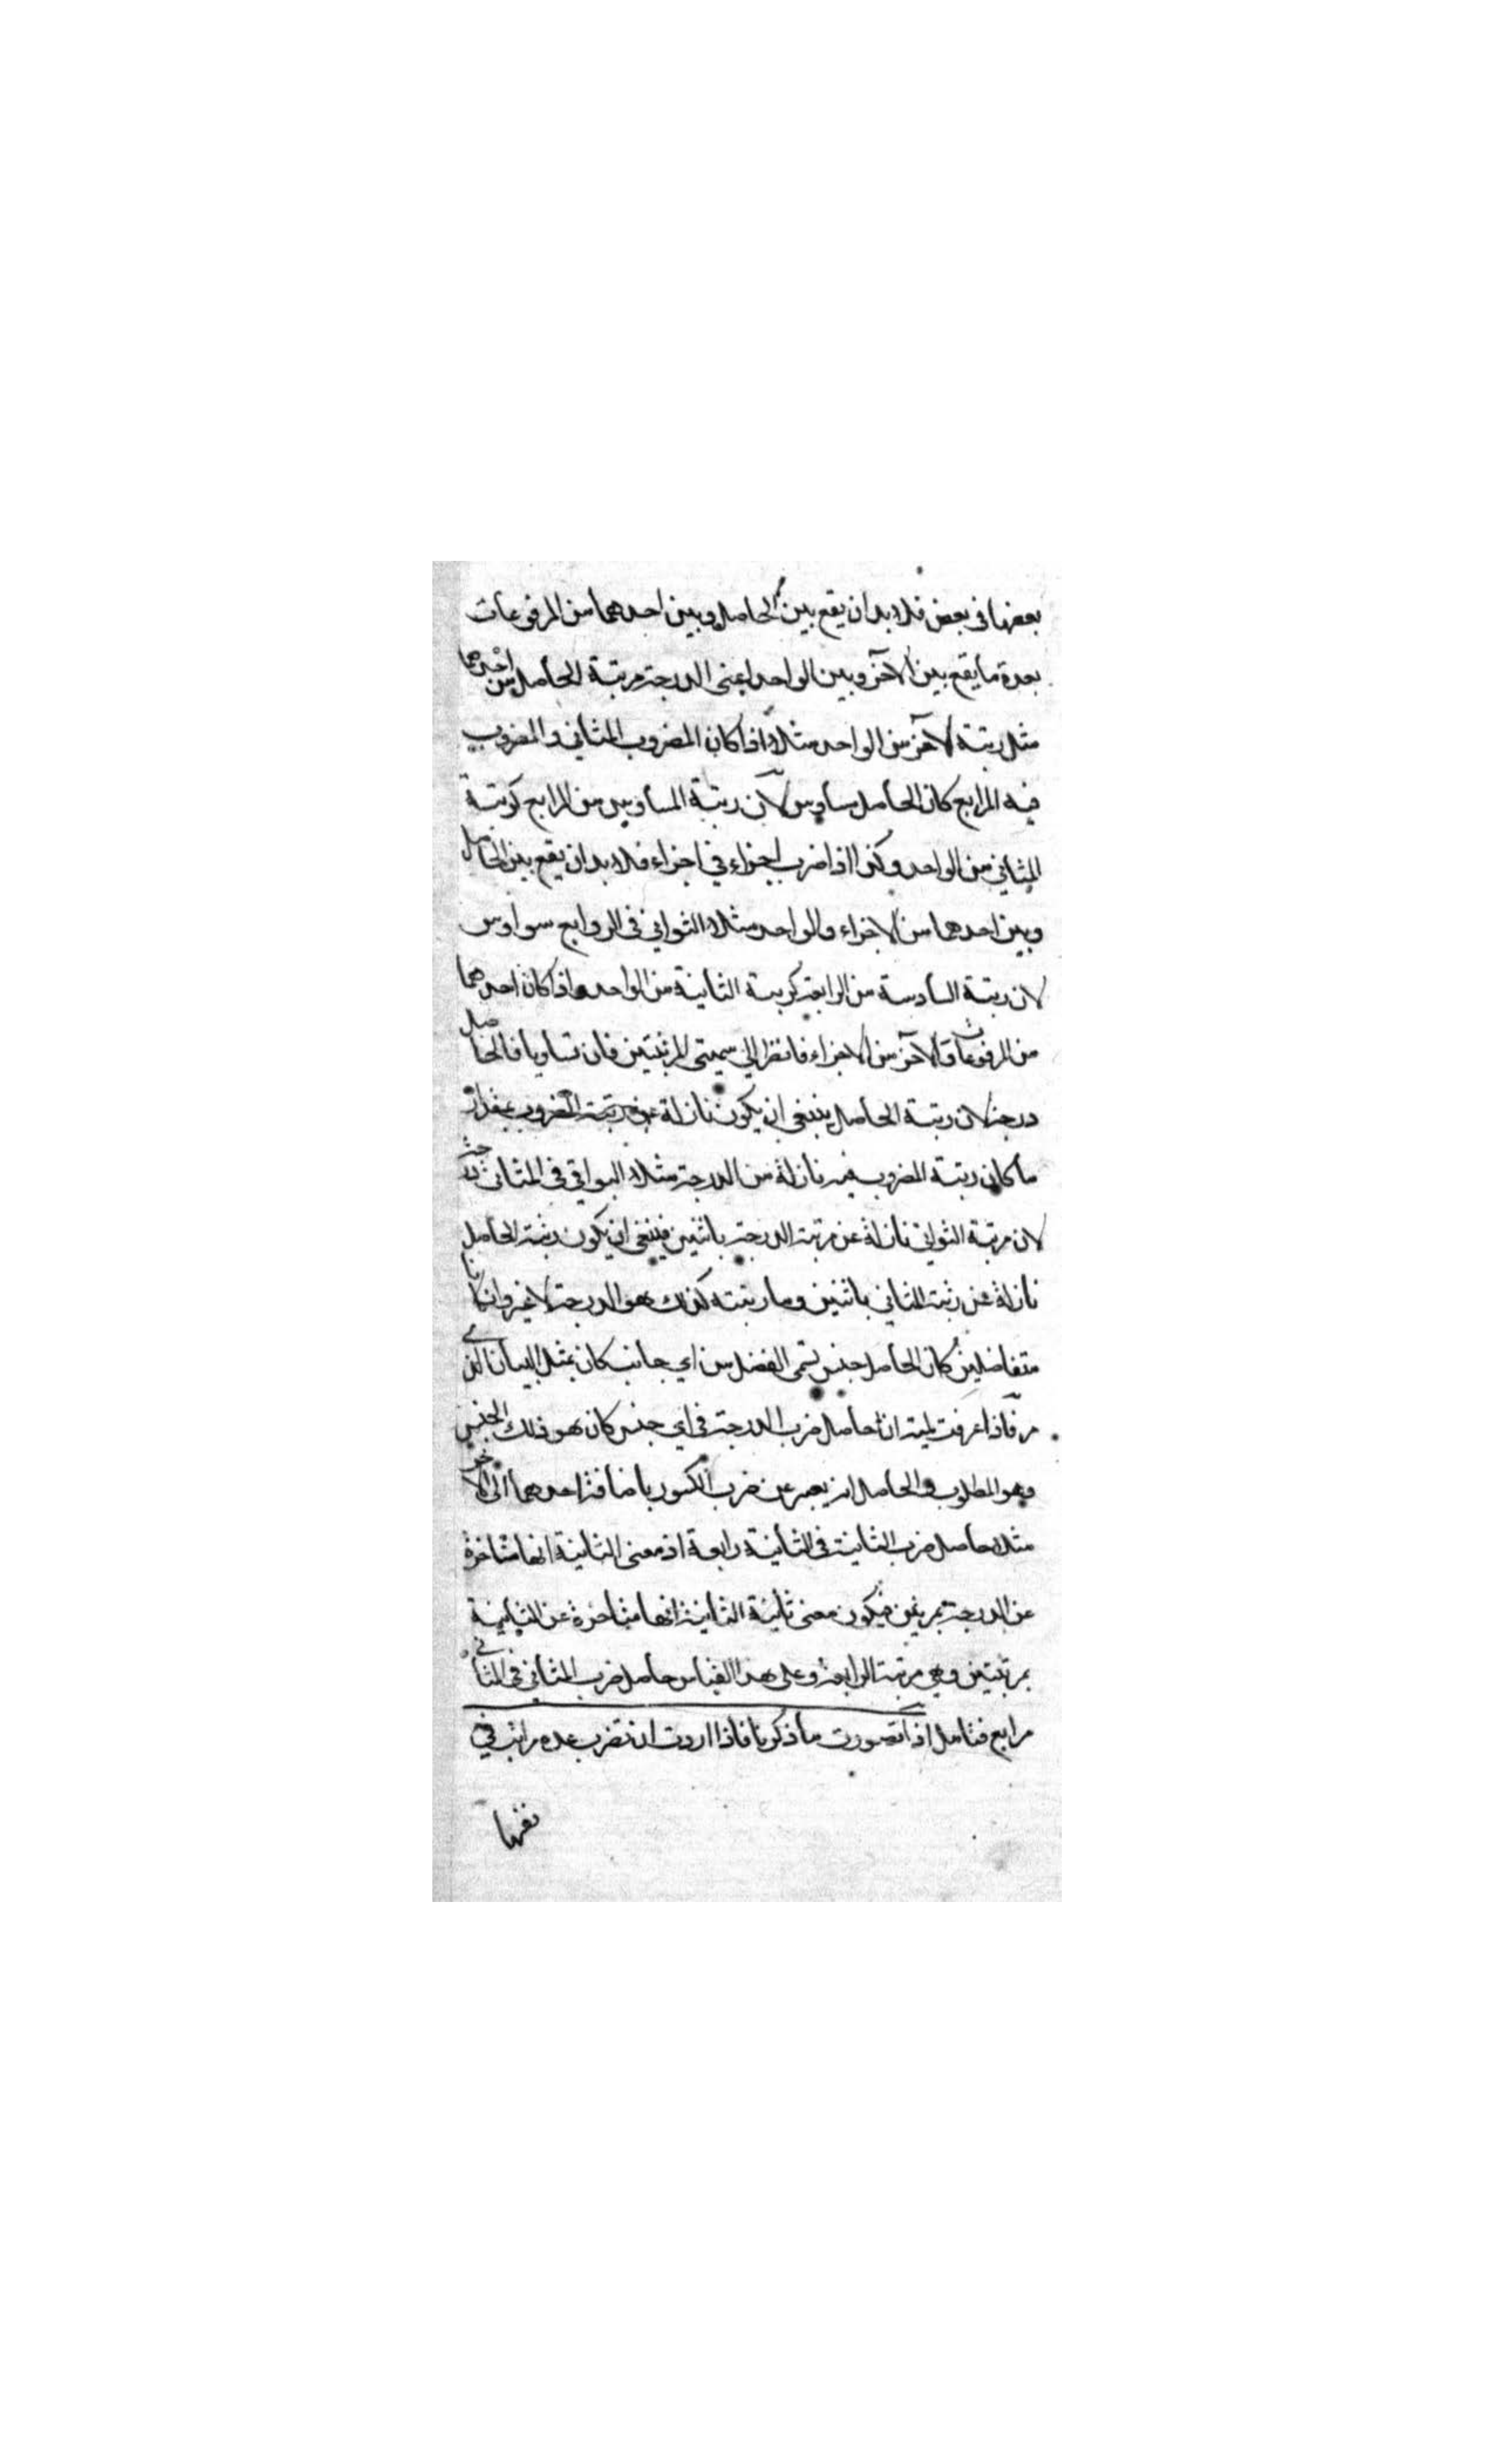 بعضها فى بعض فلا بد ان يقع بين الحاصل وبين احدهما من المرفوعات
بعدة ما يقع بين الآخر وبين الواحد اعنى الدرجة مرتبة الحاصل من احدهما
مثل رتبة الآخر من الواحد مثلا اذا كان المضروب المثانى والمضروب
فيه المرابع كان الحاصل مسادس لان رتبة المسادس من المرابع كرتبة
المثانى من الواحد وكذا اذا ضرب اجزاء فى اجزاء فلا بد ان يقع بين الحاصل
وبين احدهما من الاجزاء والواحد مثلا الثوانى فى الروابع سوادس
لان رتبة السادسة من الرابعة كرتبة الثانية من الواحد واذا كان احدهما
من المرفوعات والآخر من الاجزاء فانظر الى سميتى المرتبتين فان تساويا فالحاصل
درجة لان رتبة الحاصل ينبغى ان يكون نازلة عن رتبة المضروب بمقدار
ما كان رتبة المضروب فيه نازلة من الدرجة مثلا الثوانى فى المثانى درجة
لان مرتبة الثوانى نازلة عن مرتبة الدرجة باثنين فينبغى ان يكون رتبة الحاصل
نازلة عن رتبة المثانى باثنين وما رتبته كذلك هو الدرجة لا غير وان كانا
متفاضلين كان الحاصل جنس سمى الفضل من اى جانب كان بمثل البيان الذى
مر فاذا عرفت لميته ان حاصل ضرب الدرجة فى اى جنس كان هو ذلك الجنس
وهو المطلوب والحاصل انه يعبر عن ضرب الكسور باضافة احدهما الى الآخر
مثلا حاصل ضرب الثانية فى الثانية رابعة اذ معنى الثانية انها متاخرة
عن الدرجة بمرتبتين فيكون معنى ثانية الثانية انها متاخرة عن الثانية
بمرتبتين وهى مرتبة الرابعة وعلى هذا القياس حاصل ضرب المثانى فى المثانى
مرابع فتامل اذا تصورت ما ذكرنا فاذا اردت ان تضرب عدة مراتب فى